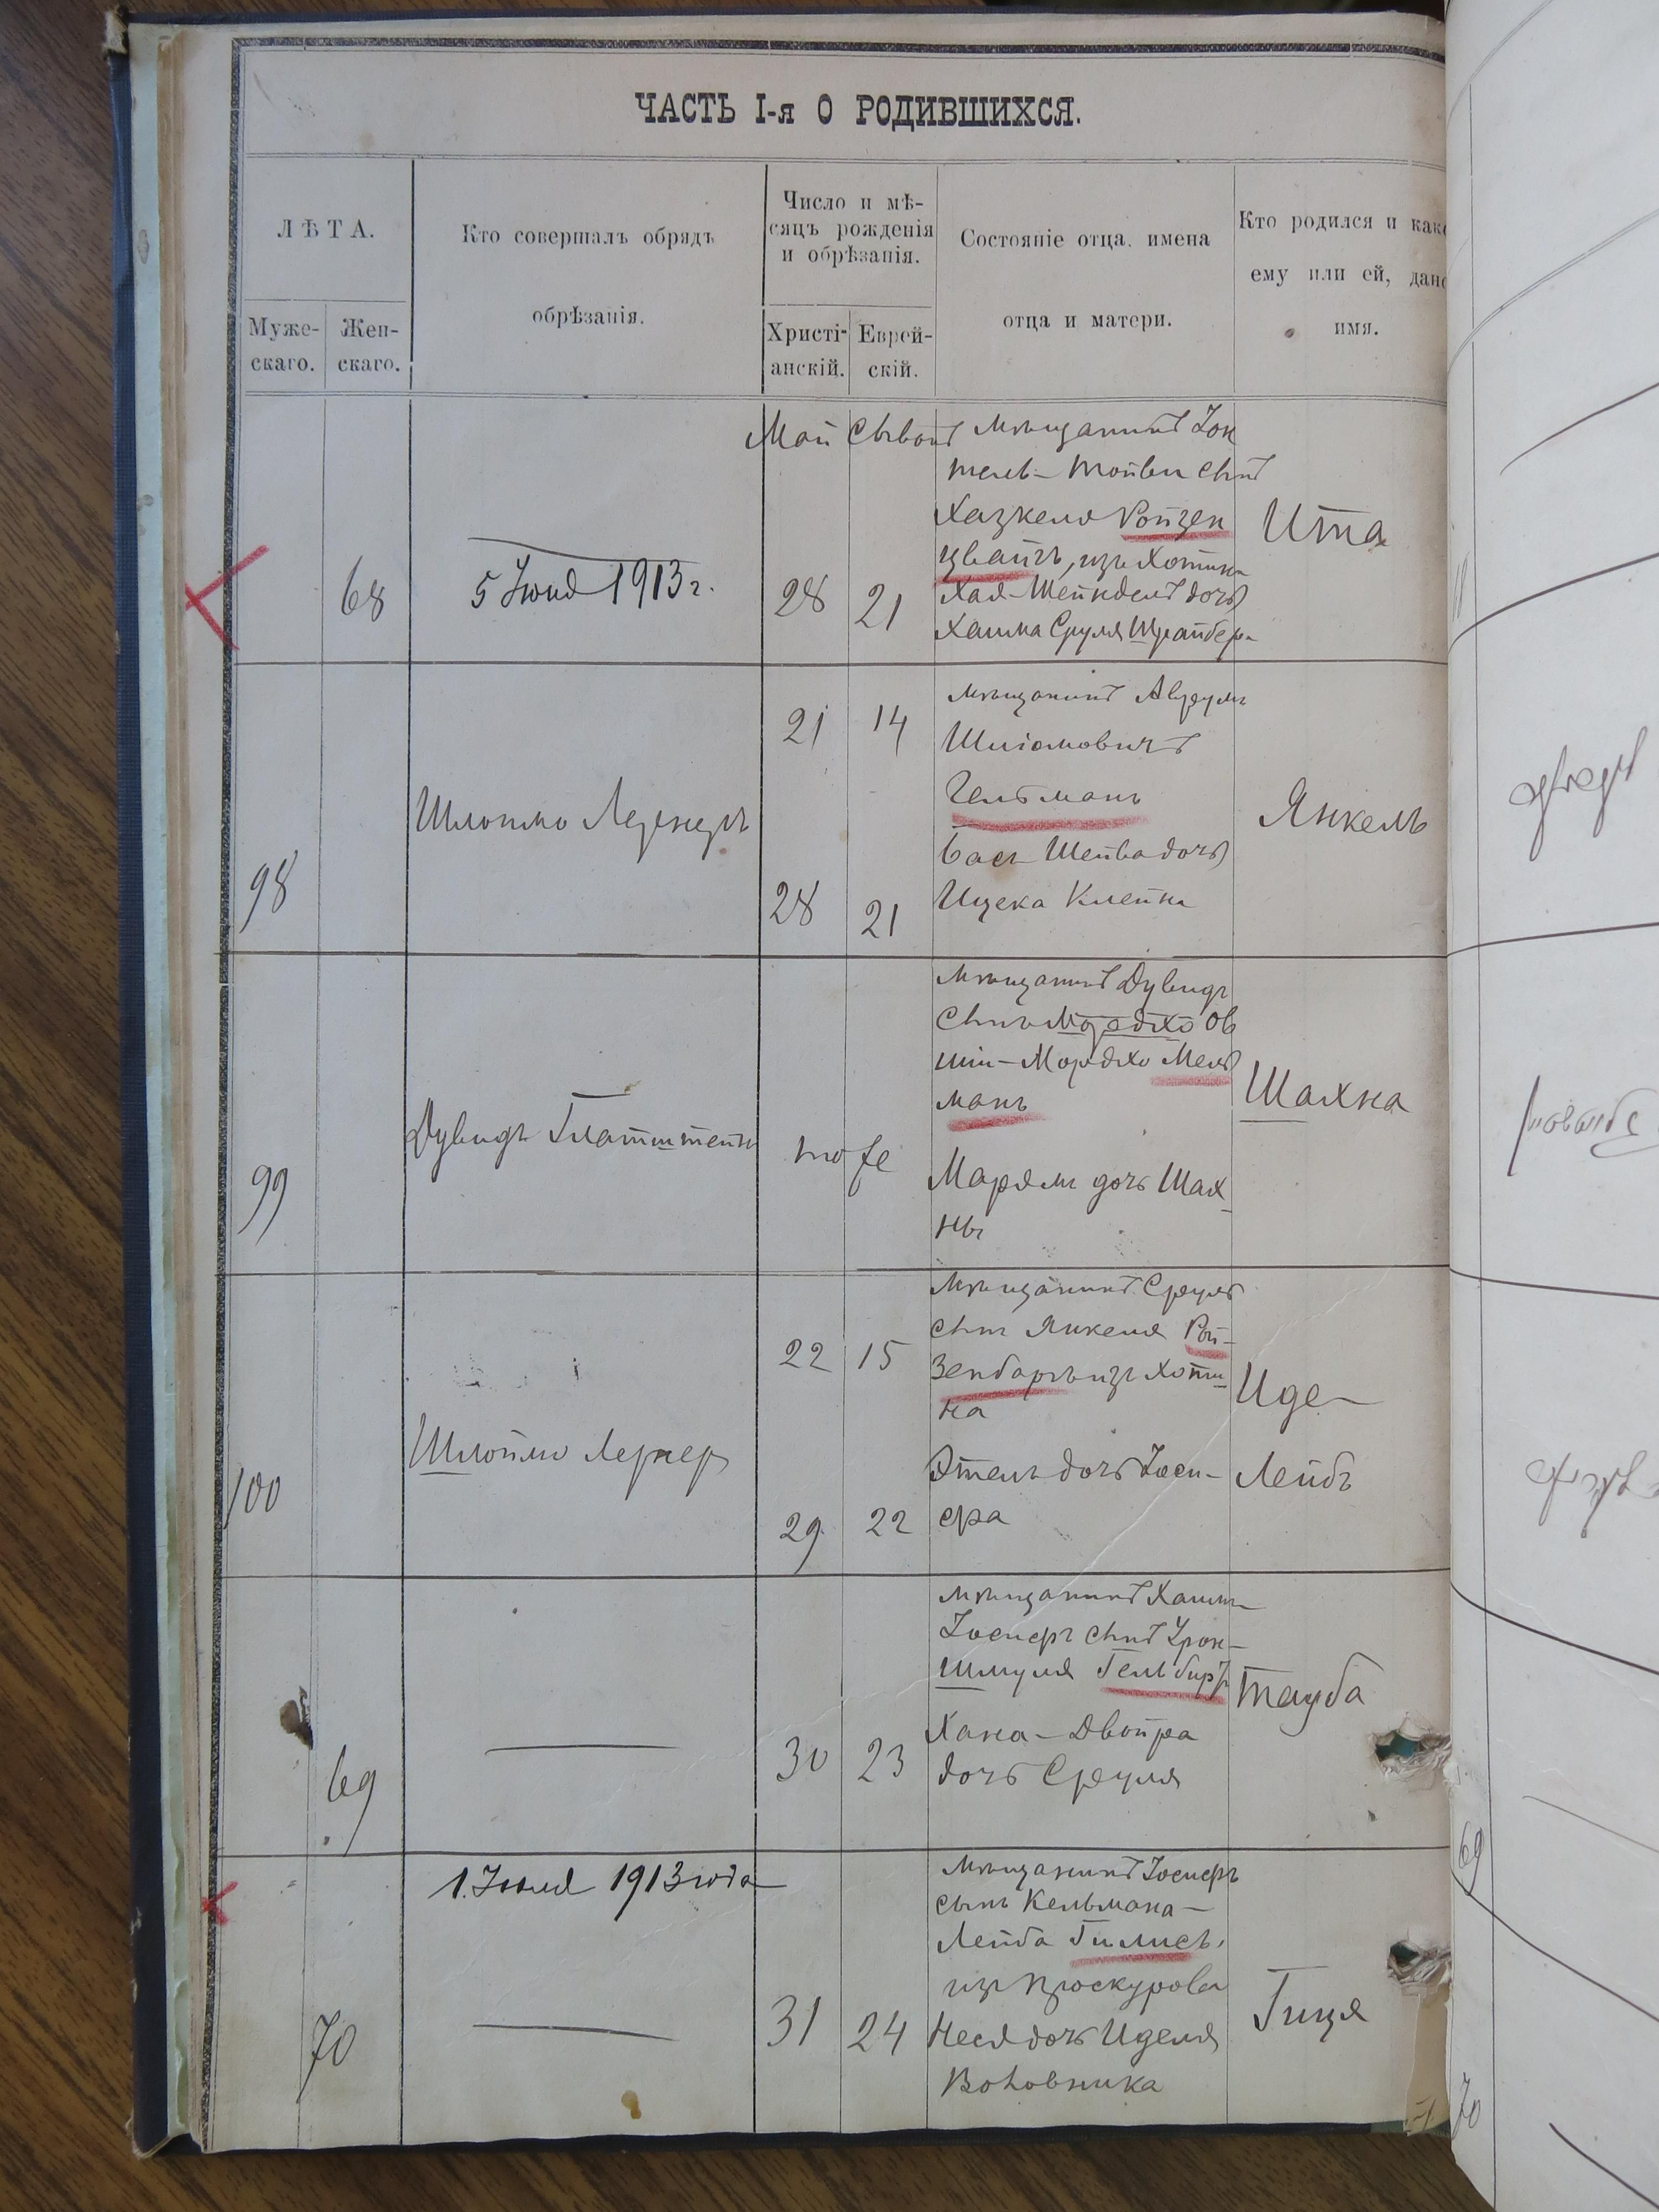 ЧАСТЬ I-я О РОДИВШИХСЯ.
ЛѢТА.
Муже-
скаго.
Жен-
скаго.
Кто совершалъ обрядъ
обрѣзанія.
Число и мѣ-
сяцъ рожденія
и обрѣзанія.
Христі-
анскій.
Еврей-
скій.
Состояніе отца, имена
отца и матери.
Кто родился и како
ему или ей, дано
имя.
68
5 Іюня 1913 г.
Май
28
21
мѣщанинъ
сынъ
Хазкеля Ройзен
цвайгъ, изъ Хотина
Хая-Шейндель дочь
Хаима Сруля Шрайбера
Ита
98
Шлоймо Лернеръ
21
14
28
21
мѣщанинъ Аврумъ
Шлiомовичъ
Гельманъ
Бася Шейва дочь
Ицека Клейна
Янкель
99
Дувидъ Глатштейнъ
то же
мѣщанинъ Дувидъ
сынъ Мордхо Ов
шiи-Мордхо Мель
манъ
Марямъ дочь Шах
ны
Шахна
100
Шлоймо Лернеръ
22
15
29
22
мѣщанинъ Сруль
сынъ Янкеля Рой-
зенбаргъ изъ Хоти-
на
Этель дочь Іоси-
фа
Иде-
Лейбъ
69
30
23
мѣщанинъ Хаимъ-
Іосифъ сынъ
Шмуля Гельбурт
Хана-Двойра
дочь Сруля
Тауба
1 Іюля 1913 года
70
31
24
мѣщанинъ Іосифъ
сынъ Кельмана-
Лейба Гилисъ,
изъ Проскурова
Неся дочь Иделя
Воловника
Гиця
69
70